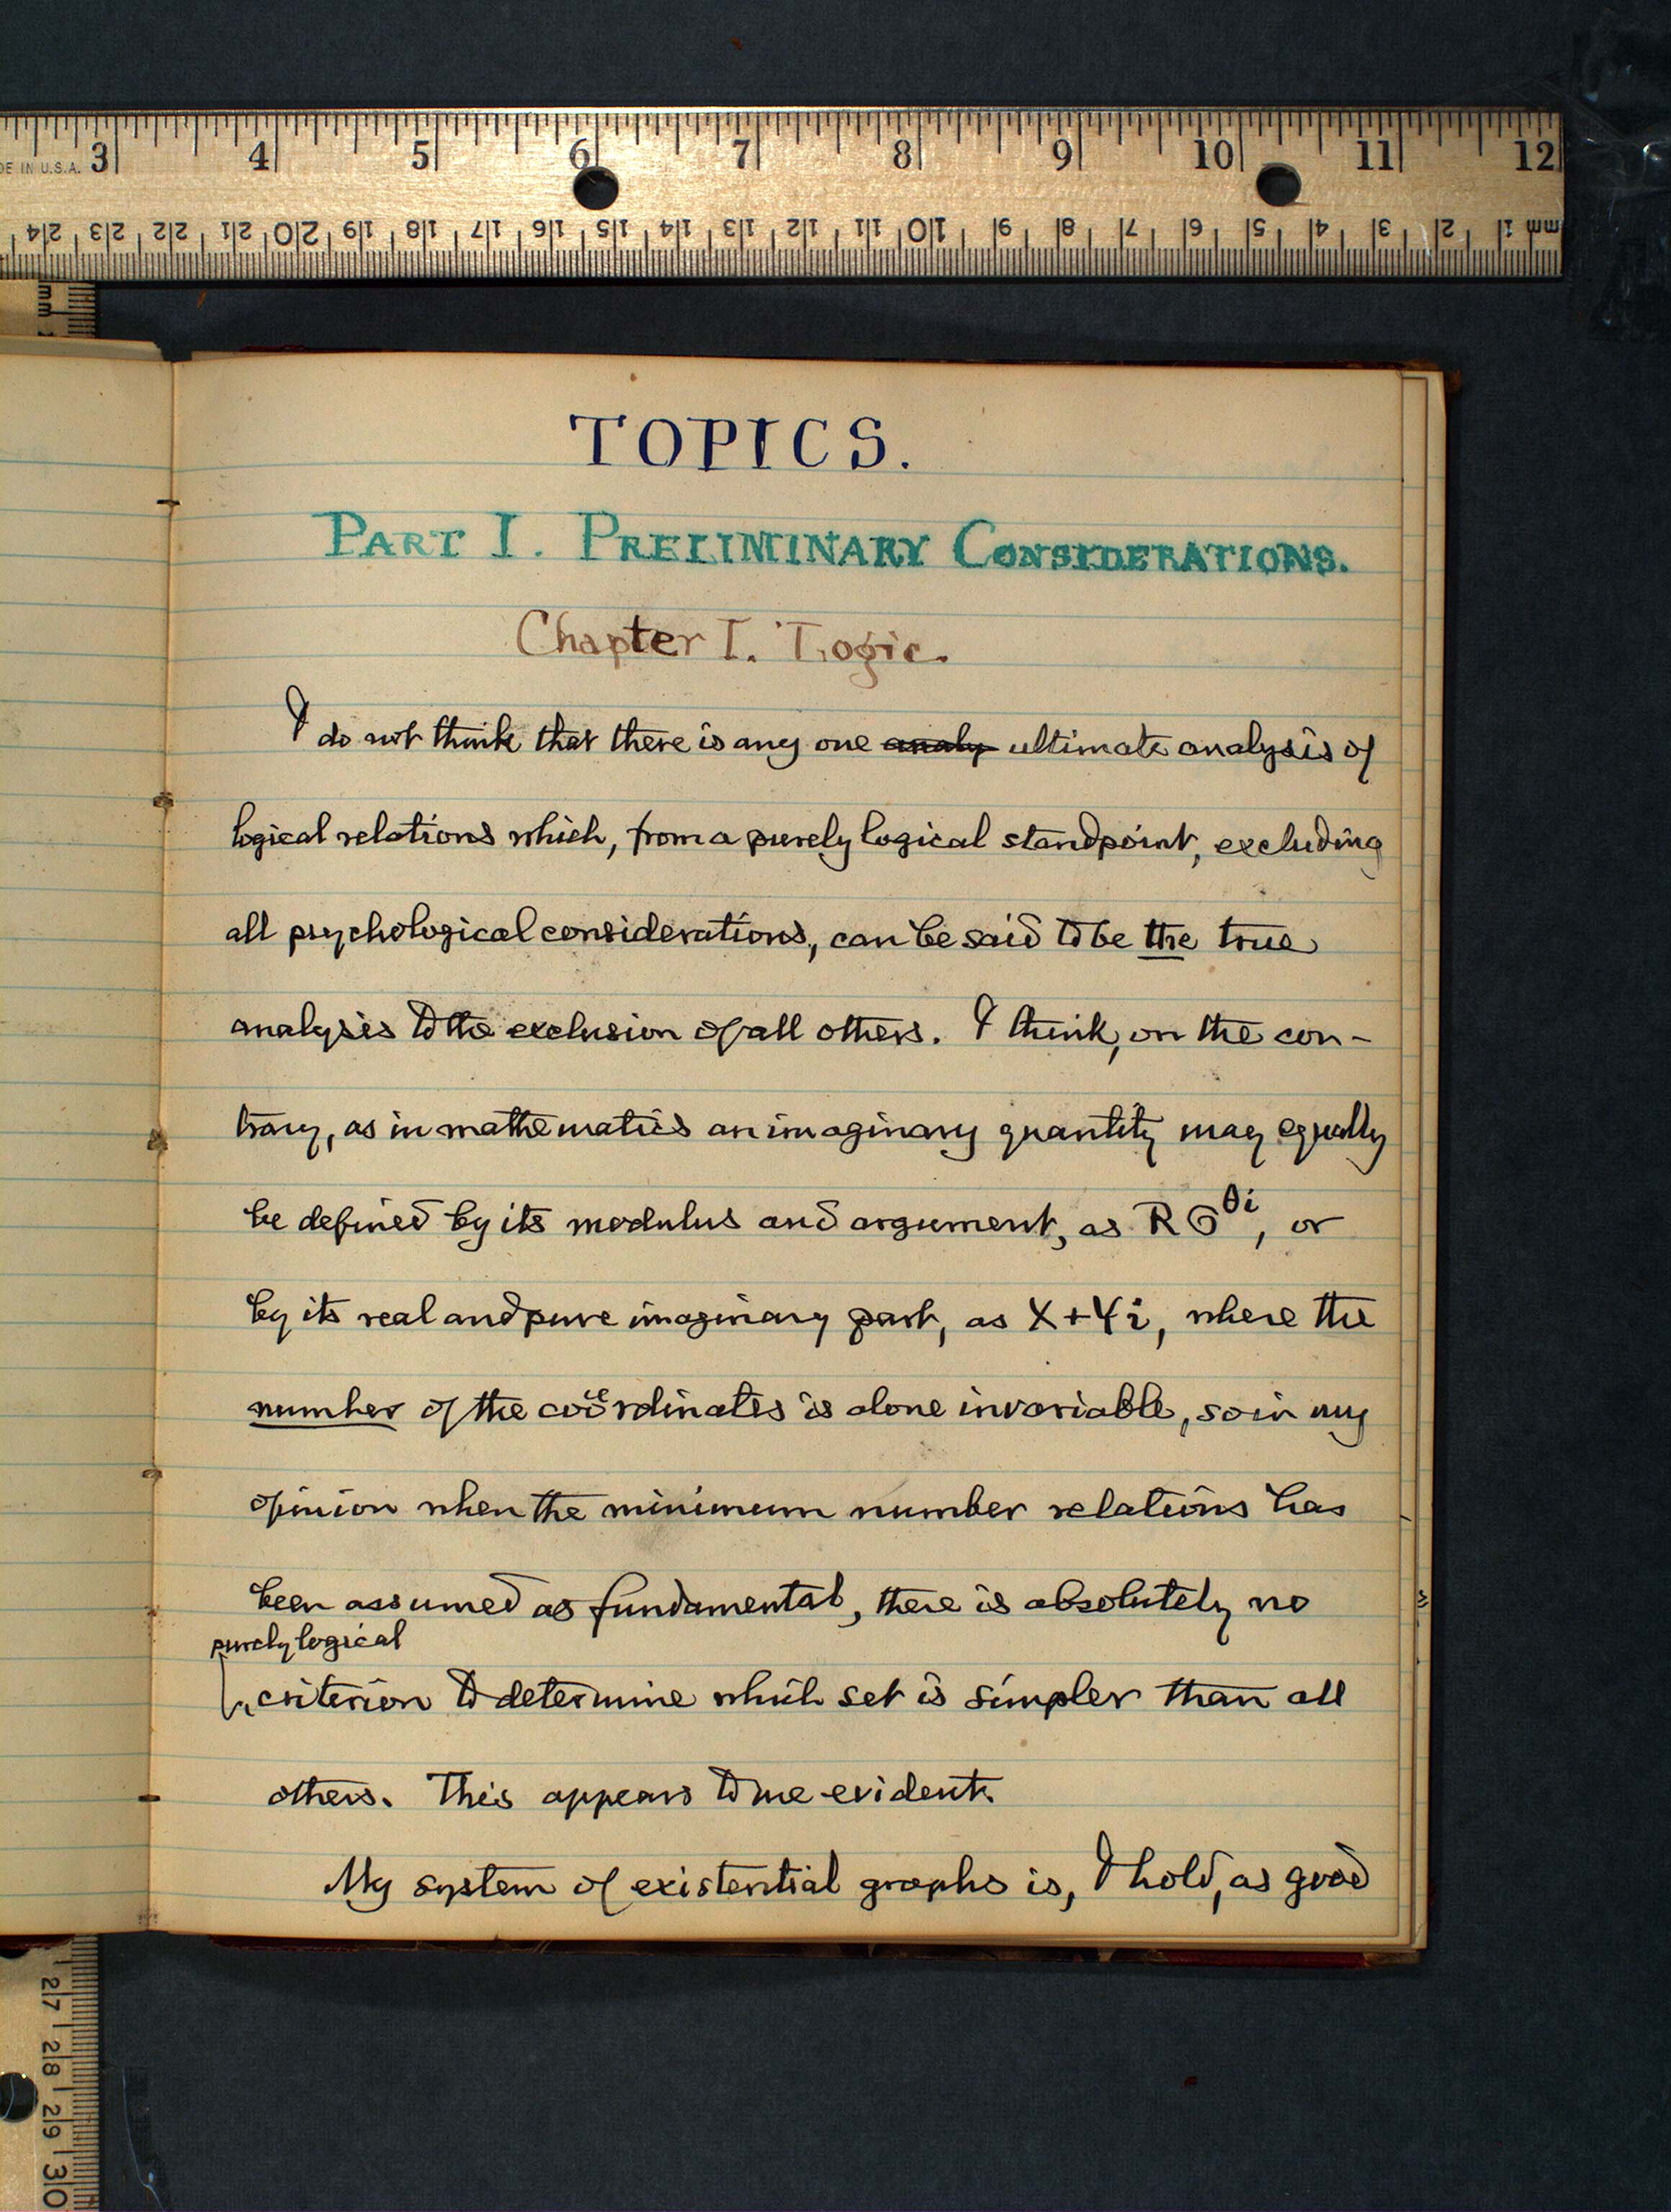 DE IN U.S.A. 3 4 5 6 7 8 9 10 11 12
24 23 22 21 20 19 18 17 16 15 14 13 12 11 10 9 8 7 6 5 4 3 2 1 mm
mm
TOPICS.
PART I. PRELIMINARY CONSIDERATIONS.
Chapter I. Logic.
I do not think that there is any one analy ultimate analysis of
logical relations which, from a purely logical standpoint, excluding
all psychological considerations, can be said to be the true
analysis to the exclusion of all others. I think, on the con-
trary, as in mathematics an imaginary quantity may equally
be defined by its modulus and argument, as R϶^θi, or
by its real and pure imaginary part, as X+Yi, where the
number of the coördinates is alone invariable, so in my
opinion when the minimum number relations has
been assumed as fundamental, there is absolutely no
purely logical
criterion to determine which set is simpler than all
others. This appears to me evident.
My system of existential graphs is, I hold, as good
27 28 29 30